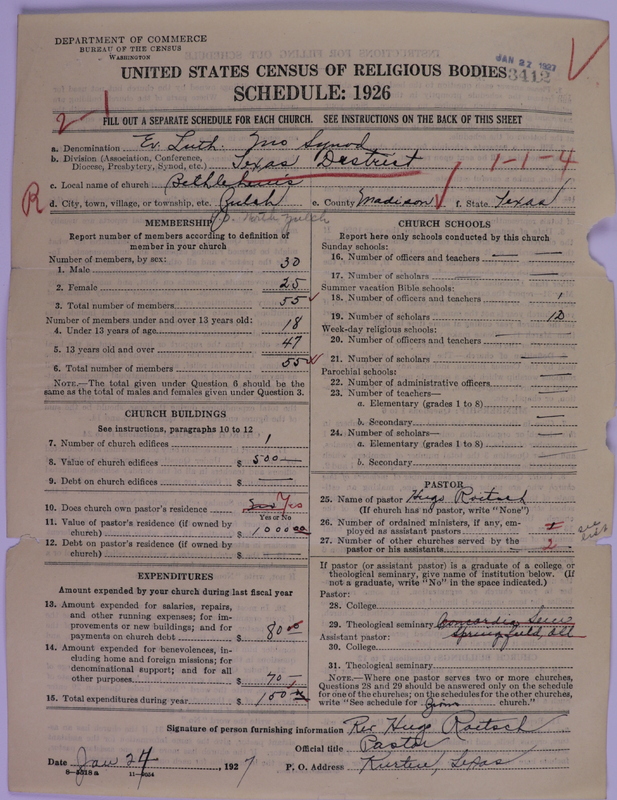 DEPARTMENT OF COMMERCE
BUREAU OF THE CENSUS
WASHINGTON
JAN 22 1927
3412
UNITED STATES CENSUS OF RELIGIOUS BODIES
SCHEDULE: 1926
2-1
FILL OUT A SEPARATE SCHEDULE FOR EACH CHURCH. SEE INSTRUCTIONS ON THE BACK OF THIS SHEET
a. Denomination Ev. Luth. Mo Synod
b. Division (Association, Conference,
Diocese, Presbytery, Synod, etc.) Texas District
1-1-4
c. Local name of church Bethlehem's
R
d. City, town, village, or township, etc. Zulch e. County Madison f. State Texas
North Zulch
MEMBERSHIP
Report number of members according to definition of
member in your church
Number of members, by sex:
1. Male 30
2. Female 25
3. Total number of members 55
Number of members under and over 13 years old:
4. Under 13 years of age 18
5. 13 years old and over 47
6. Total number of members 55
NOTE.—The total given under Question 6 should be the
same as the total of males and females given under Question 3.
CHURCH BUILDINGS
See instructions, paragraphs 10 to 12
7. Number of church edifices 1
8. Value of church edifices $ 500—
9. Debt on church edifices $ —
10. Does church own pastor's residence Yes
Yes or No
11. Value of pastor's residence (if owned by
church) $ 1000 00
12. Debt on pastor's residence (if owned by
church) $ —
EXPENDITURES
Amount expended by your church during last fiscal year
13. Amount expended for salaries, repairs,
and other running expenses; for im-
provements or new buildings; and for
payments on church debt $ 80 00
14. Amount expended for benevolences, in-
cluding home and foreign missions; for
denominational support; and for all
other purposes $ 70—
15. Total expenditures during year $ 150
CHURCH SCHOOLS
Report here only schools conducted by this church
Sunday schools:
16. Number of officers and teachers — —
17. Number of scholars — —
Summer vacation Bible schools:
18. Number of officers and teachers 1
19. Number of scholars 10
Week-day religious schools:
20. Number of officers and teachers —
21. Number of scholars —
Parochial schools:
22. Number of administrative officers —
23. Number of teachers—
a. Elementary (grades 1 to 8)
b. Secondary —
24. Number of scholars—
a. Elementary (grades 1 to 8) —
b. Secondary —
PASTOR
25. Name of pastor Hugo Roetsch
(If church has no pastor, write "None")
26. Number of ordained ministers, if any, em-
ployed as assistant pastors
27. Number of other churches served by the
pastor or his assistants 2
see
If pastor (or assistant pastor) is a graduate of a college or
theological seminary, give name of institution below. (If
not a graduate, write "No" in the space indicated.)
Pastor:
28. College
29. Theological seminary Concordia Sem
Springfield, Ill
Assistant pastor:
30. College
31. Theological seminary
NOTE.—Where one pastor serves two or more churches,
Questions 28 and 29 should be answered only on the schedule
for one of the churches; on the schedules for the other churches,
write "See schedule for Zion church."
Signature of person furnishing information Rev Hugo Roetsch
Official title Pastor
Date Jan 24, 1927 P. O. Address Kurten, Texas
8-5218 a 11-9054